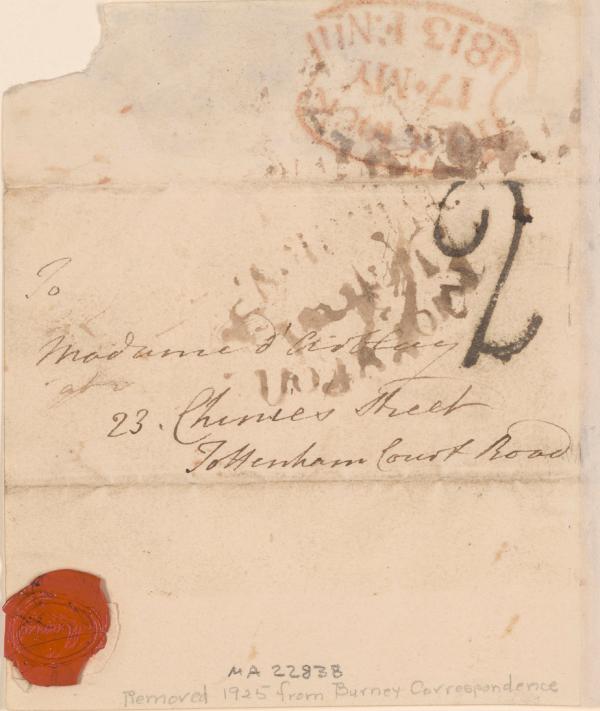 1813 F.NII
17·MY
2
To
Madame d'Arblay
at
23. Chenies Street
Tottenham Court Road
MA 22838
Removed 1925 from Burney Correspondence